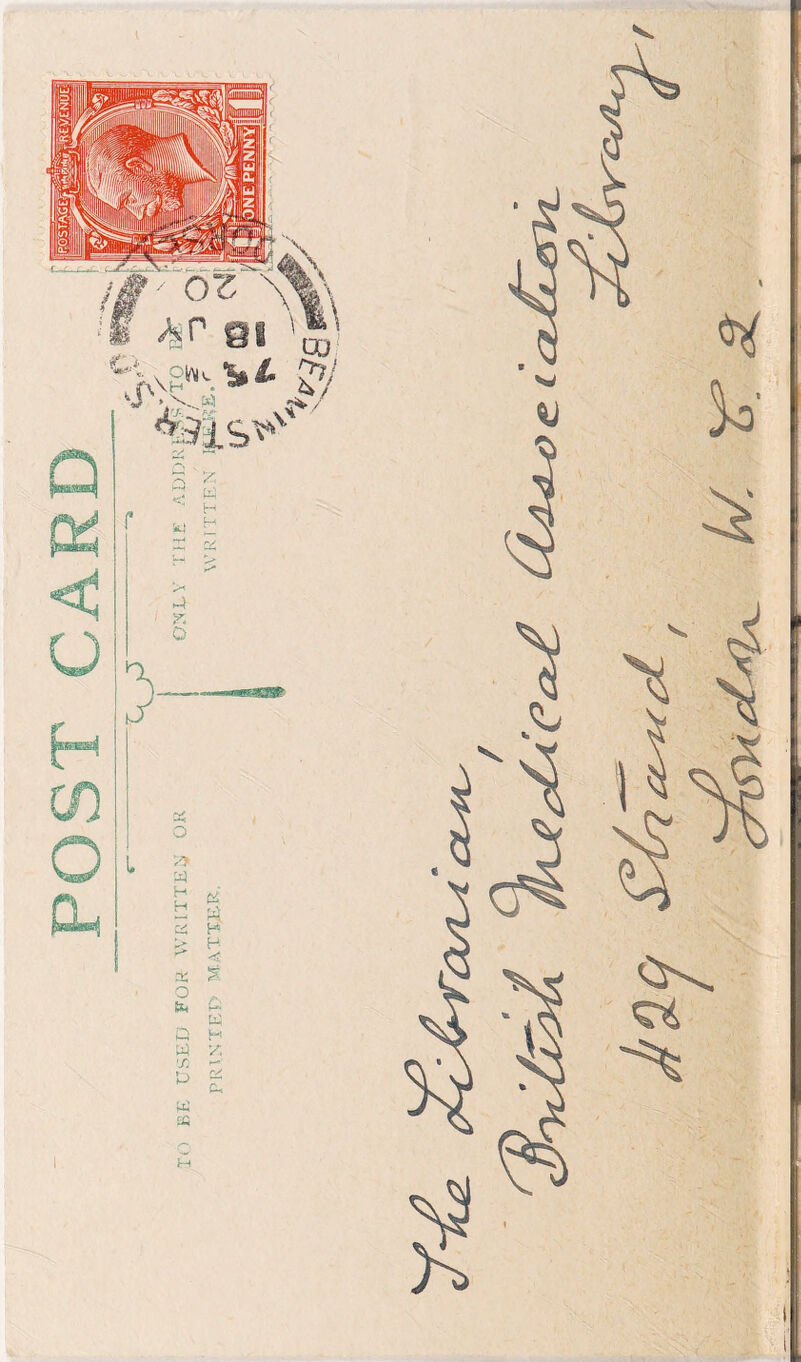 POST CARD
TO BE USED FOR WRITTEN OR
PRINTED MATTER.
ONLY THE ADDRESS TO BE
WRITTEN HERE.
POSTAGE REVENUE
1 ONE PENNY 1
BEAMINSTER S.O
18 JY
20
The Librarian,
British Medical Association
Library,
429 Strand,
London W. C. 2.